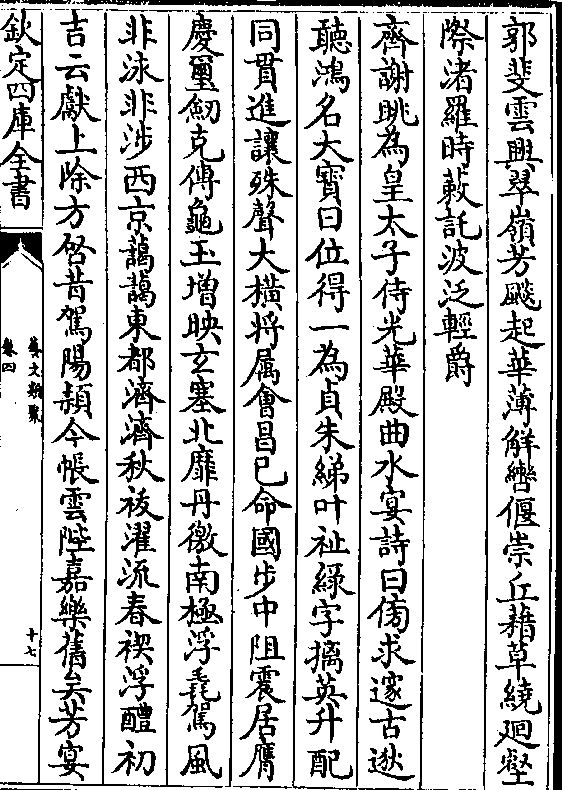 郭斐雲興翠嶺芳飈起華薄解轡偃崇丘藉草繞廻壑
際渚羅時蔌託波泛輕爵
齊謝眺為皇太子侍光華殿曲水宴詩曰傍求邃古逖
聽鴻名大寳曰位得一為貞朱綈叶祉緑字摛英升配
同貫進讓殊聲大横将屬㑹昌已命國步中阻震居膺
慶璽劒克傅龜玉增映玄塞北靡丹徼南極浮毳駕風
非泳非涉西京藹藹東都濟濟秋祓濯流春禊浮醴初
吉云獻上除方啓昔駕陽潁今帳雲陛嘉樂舊矣芳宴
欽定四庫全書
藝文類聚
卷四
十七